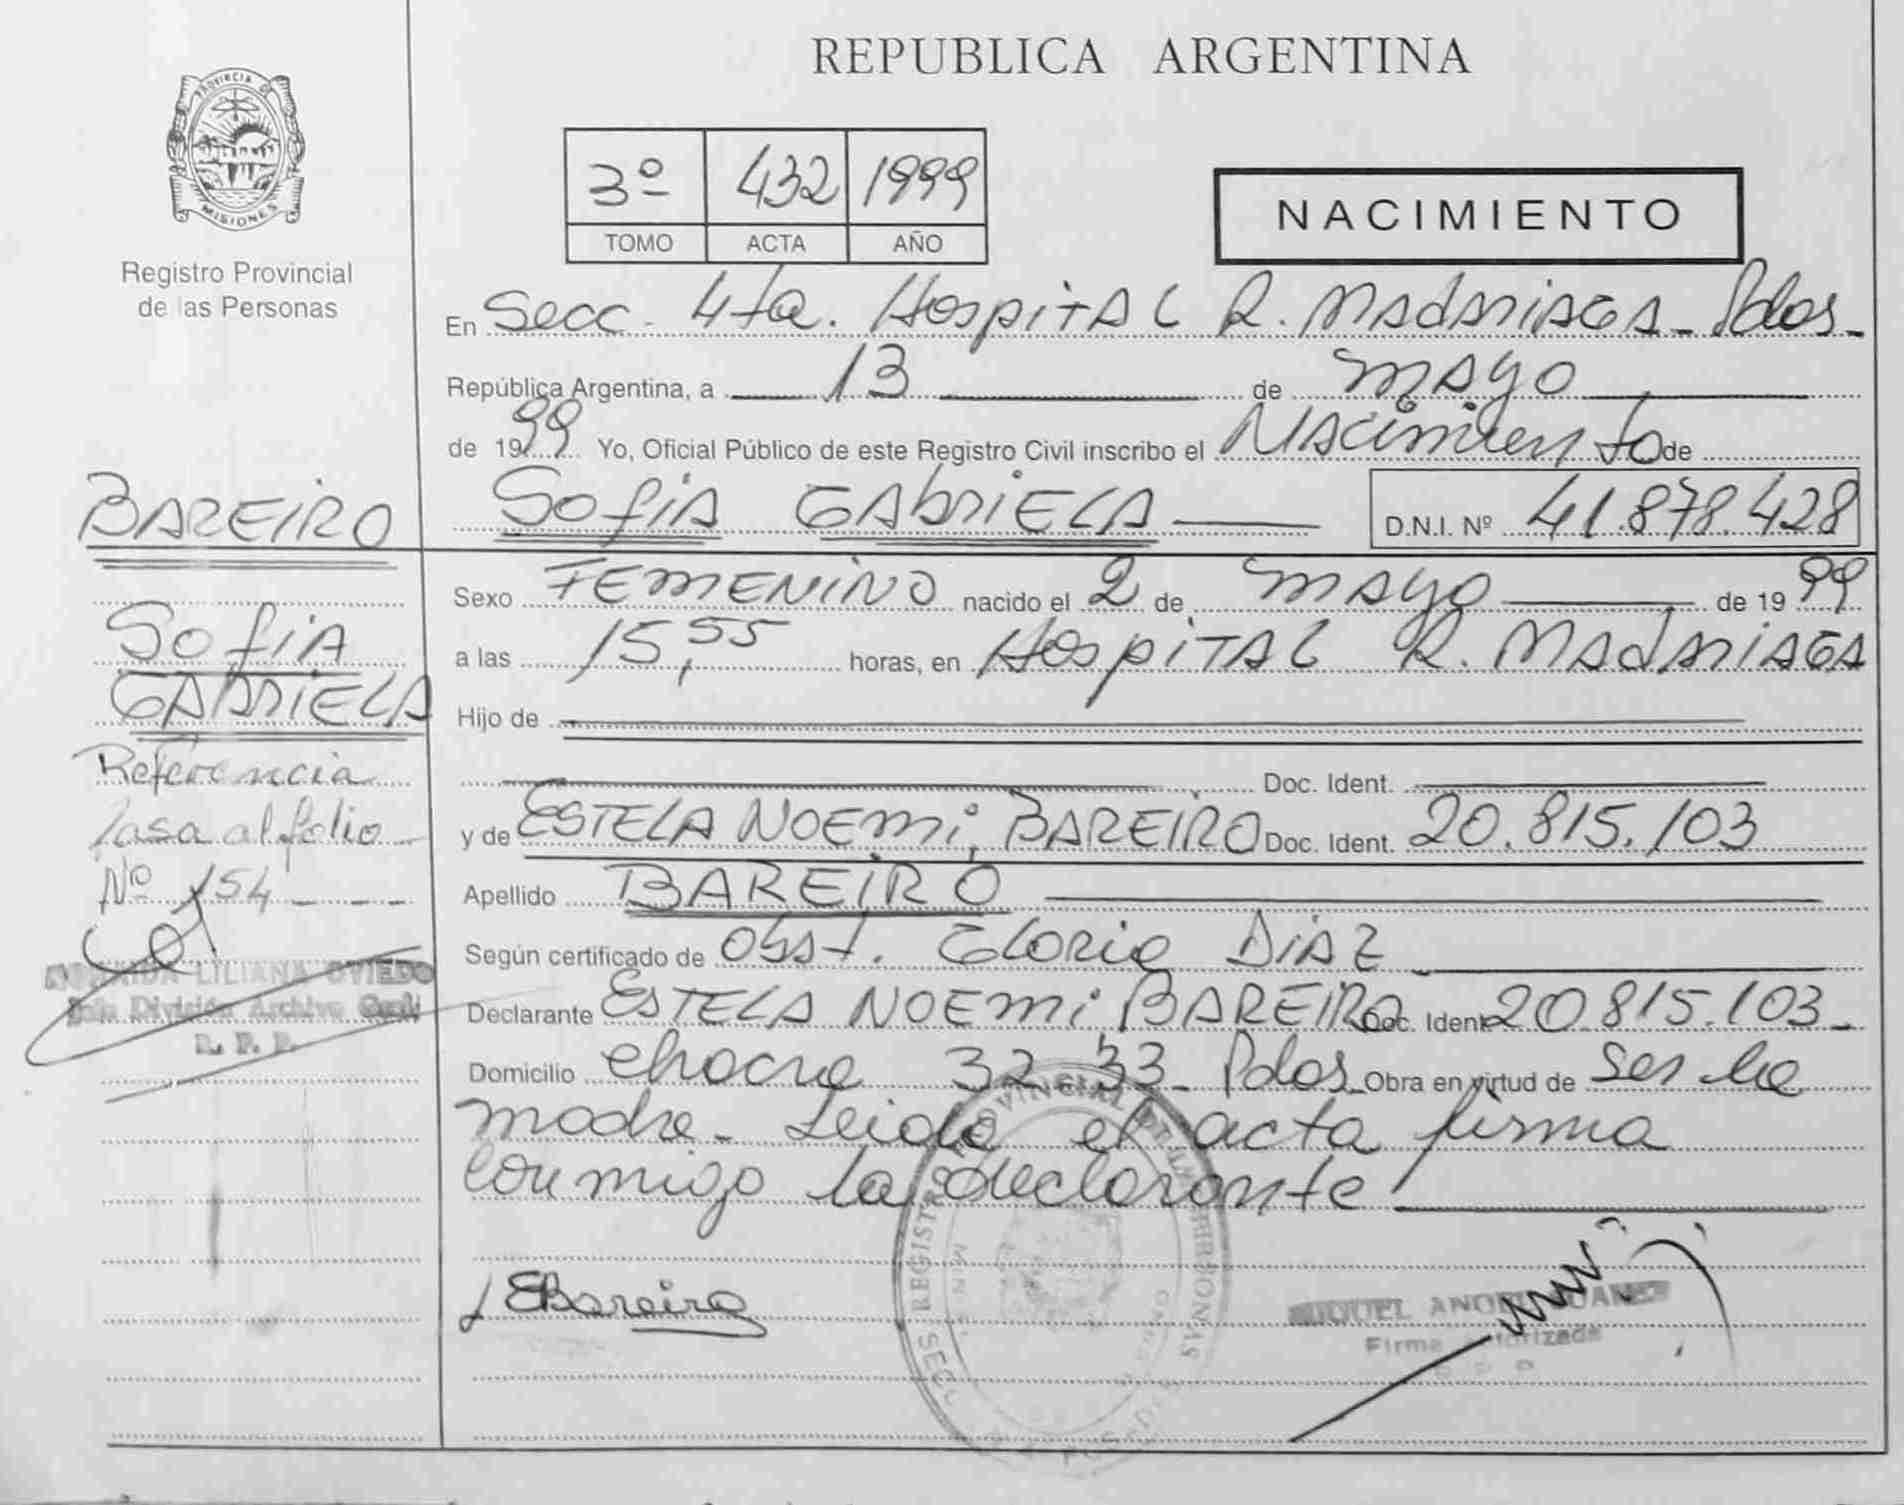 REPUBLICA ARGENTINA
PROVINCIA DE
MISIONES
Registro Provincial
de las Personas
3º 432 1999
TOMO ACTA AÑO
NACIMIENTO
En Secc. 4ta. Hospital R. Madariaga - Pdas -
República Argentina, a 13 de mayo
de 1999 Yo, Oficial Público de este Registro Civil inscribo el Nacimiento de
Sofia Gabriela D.N.I. Nº 41.878.428
BAREIRO
Sofia
GABRIELA
Referencia
Pasa al folio
Nº 154
LILIANA OVIEDO
División Archivo Gral
R. P. P.
Sexo FEMENINO nacido el 2 de mayo de 1999
a las 15,55 horas, en Hospital R. Madariaga
Hijo de
Doc. Ident.
y de ESTELA NOEMI, BAREIRO Doc. Ident. 20.815.103
Apellido BAREIRO
Según certificado de Obst. Gloria Diaz
Declarante ESTELA NOEMI BAREIRO Doc. Ident 20.815.103 -
Domicilio chacra 32 33 - Pdas - Obra en virtud de ser la
madre - Leida el acta firma
conmigo la declarante
EBareiro
MIGUEL
Firma Autorizada
REGISTRO PROVINCIAL DE LAS PERSONAS